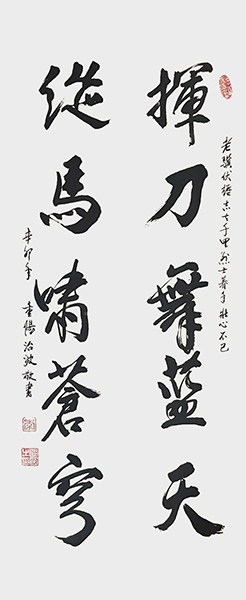 揮刀舞藍天
縱馬嘯蒼穹
老驥伏櫪志在千里烈士暮年壯心不已
辛卯年
重陽治波敬書